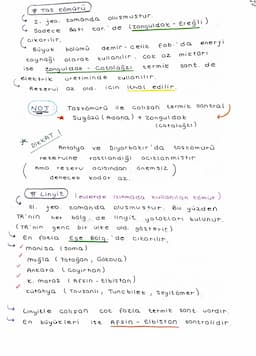 # TAŞ KÖMÜRÜ
↳ I. jeo. zamanda oluşmuştur.
↳ Sadece Batı Kar. 'de (Zonguldak - Ereğli)
çıkarılır.
↳ Büyük bölümü demir-çelik fab.'da enerji
kaynağı olarak kullanılır. Çok az miktarı
ise Zonguldak - Çatalağzı termik sant. de
elektrik üretiminde kullanılır.
↳ Rezervi az old. için ithal edilir.
NOT Taşkömürü ile çalışan termik santral
★ Sugözü (Adana) + Zonguldak
(Çatalağzı)
DİKKAT!
Antalya ve Diyarbakır'da taşkömürü
rezervine rastlandığı açıklanmıştır
(Ama rezerv açısından önemsiz
denecek kadar az.
# Linyit (evlerde ısınmada kullanılan kömür)
↳ III. jeo. zamanda oluşmuştur. Bu yüzden
TR'nin her bölg. de linyit yatakları bulunur.
(TR'nin genç bir ülke old. gösterir)
↳ En fazla Ege Bölg. de çıkarılır.
✓ Manisa (Soma)
✓ Muğla (Yatağan, Gökova)
✓ Ankara (Çayırhan)
✓ K. maraş (Afşin - Elbistan)
✓ Kütahya (Tavşanlı, Tunçbilek, Seyitömer)
↳ Linyitle çalışan çok fazla termik sant vardır.
↳ En büyükleri ise Afşin - Elbistan santralidir